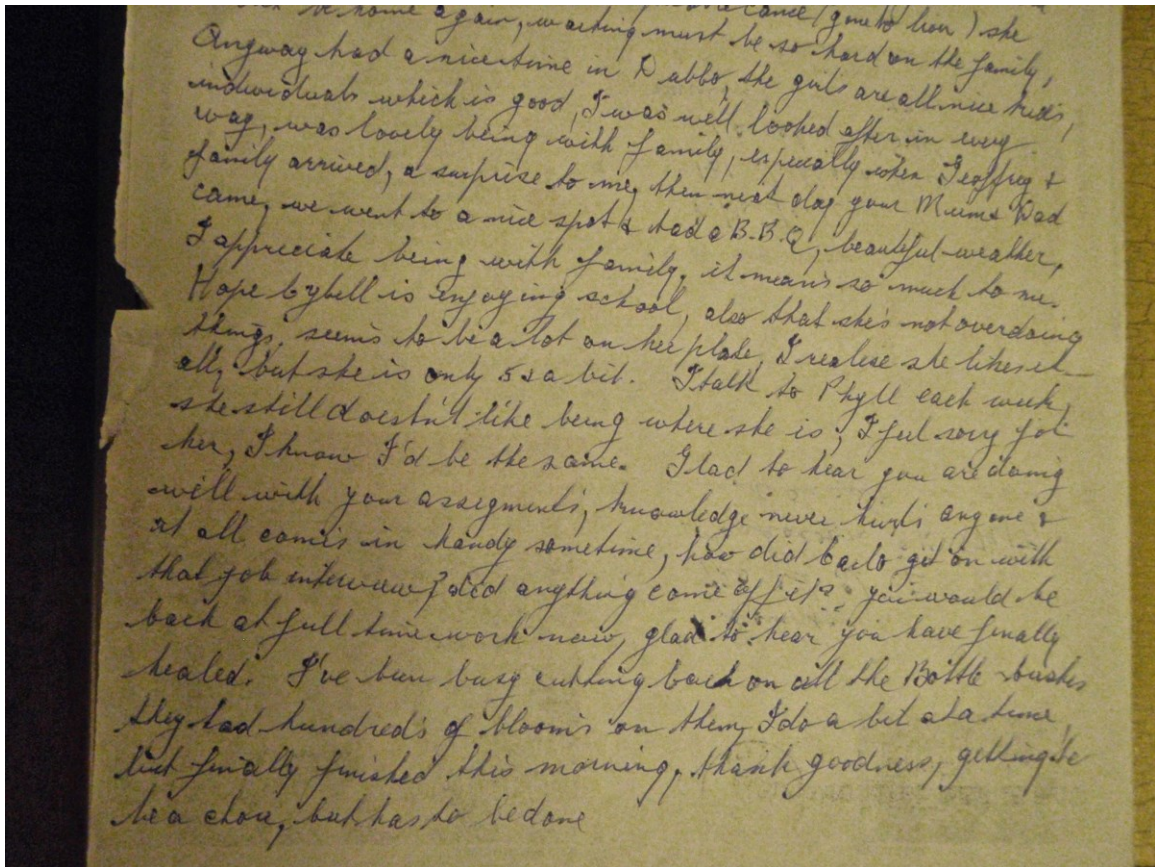 be home again, waiting must be so hard on the family,
Anyway had a nice time in Dubbo, the girls are all nice kids,
individuals which is good, I was well looked after in every
way, was lovely being with family, especially when Geoffrey &
family arrived, a surprise to me, then next day your Mum & Dad
came, we went to a nice spot & had a B.B.Q, beautiful weather,
I appreciate being with family, it means so much to me.
Hope Cybell is enjoying school, also that she's not overdoing
things, seems to be a lot on her plate, I realise she likes it
all, but she is only 5 & a bit. I talk to Phyll each week,
she still doesn't like being where she is, I feel sorry for
her, I know I'd be the same. Glad to hear you are doing
well with your assegments, knowledge never hurts anyone &
it all comes in handy sometime, how did get on with
that job interview? did anything come of it? you would be
back at full time work now, glad to hear you have finally
healed. I've been busy cutting back on all the Bottle-brushes
they had hundred's of blooms on them, I do a bit at a time,
but finally finished this morning, thank goodness, getting to
be a chore, but has to be done